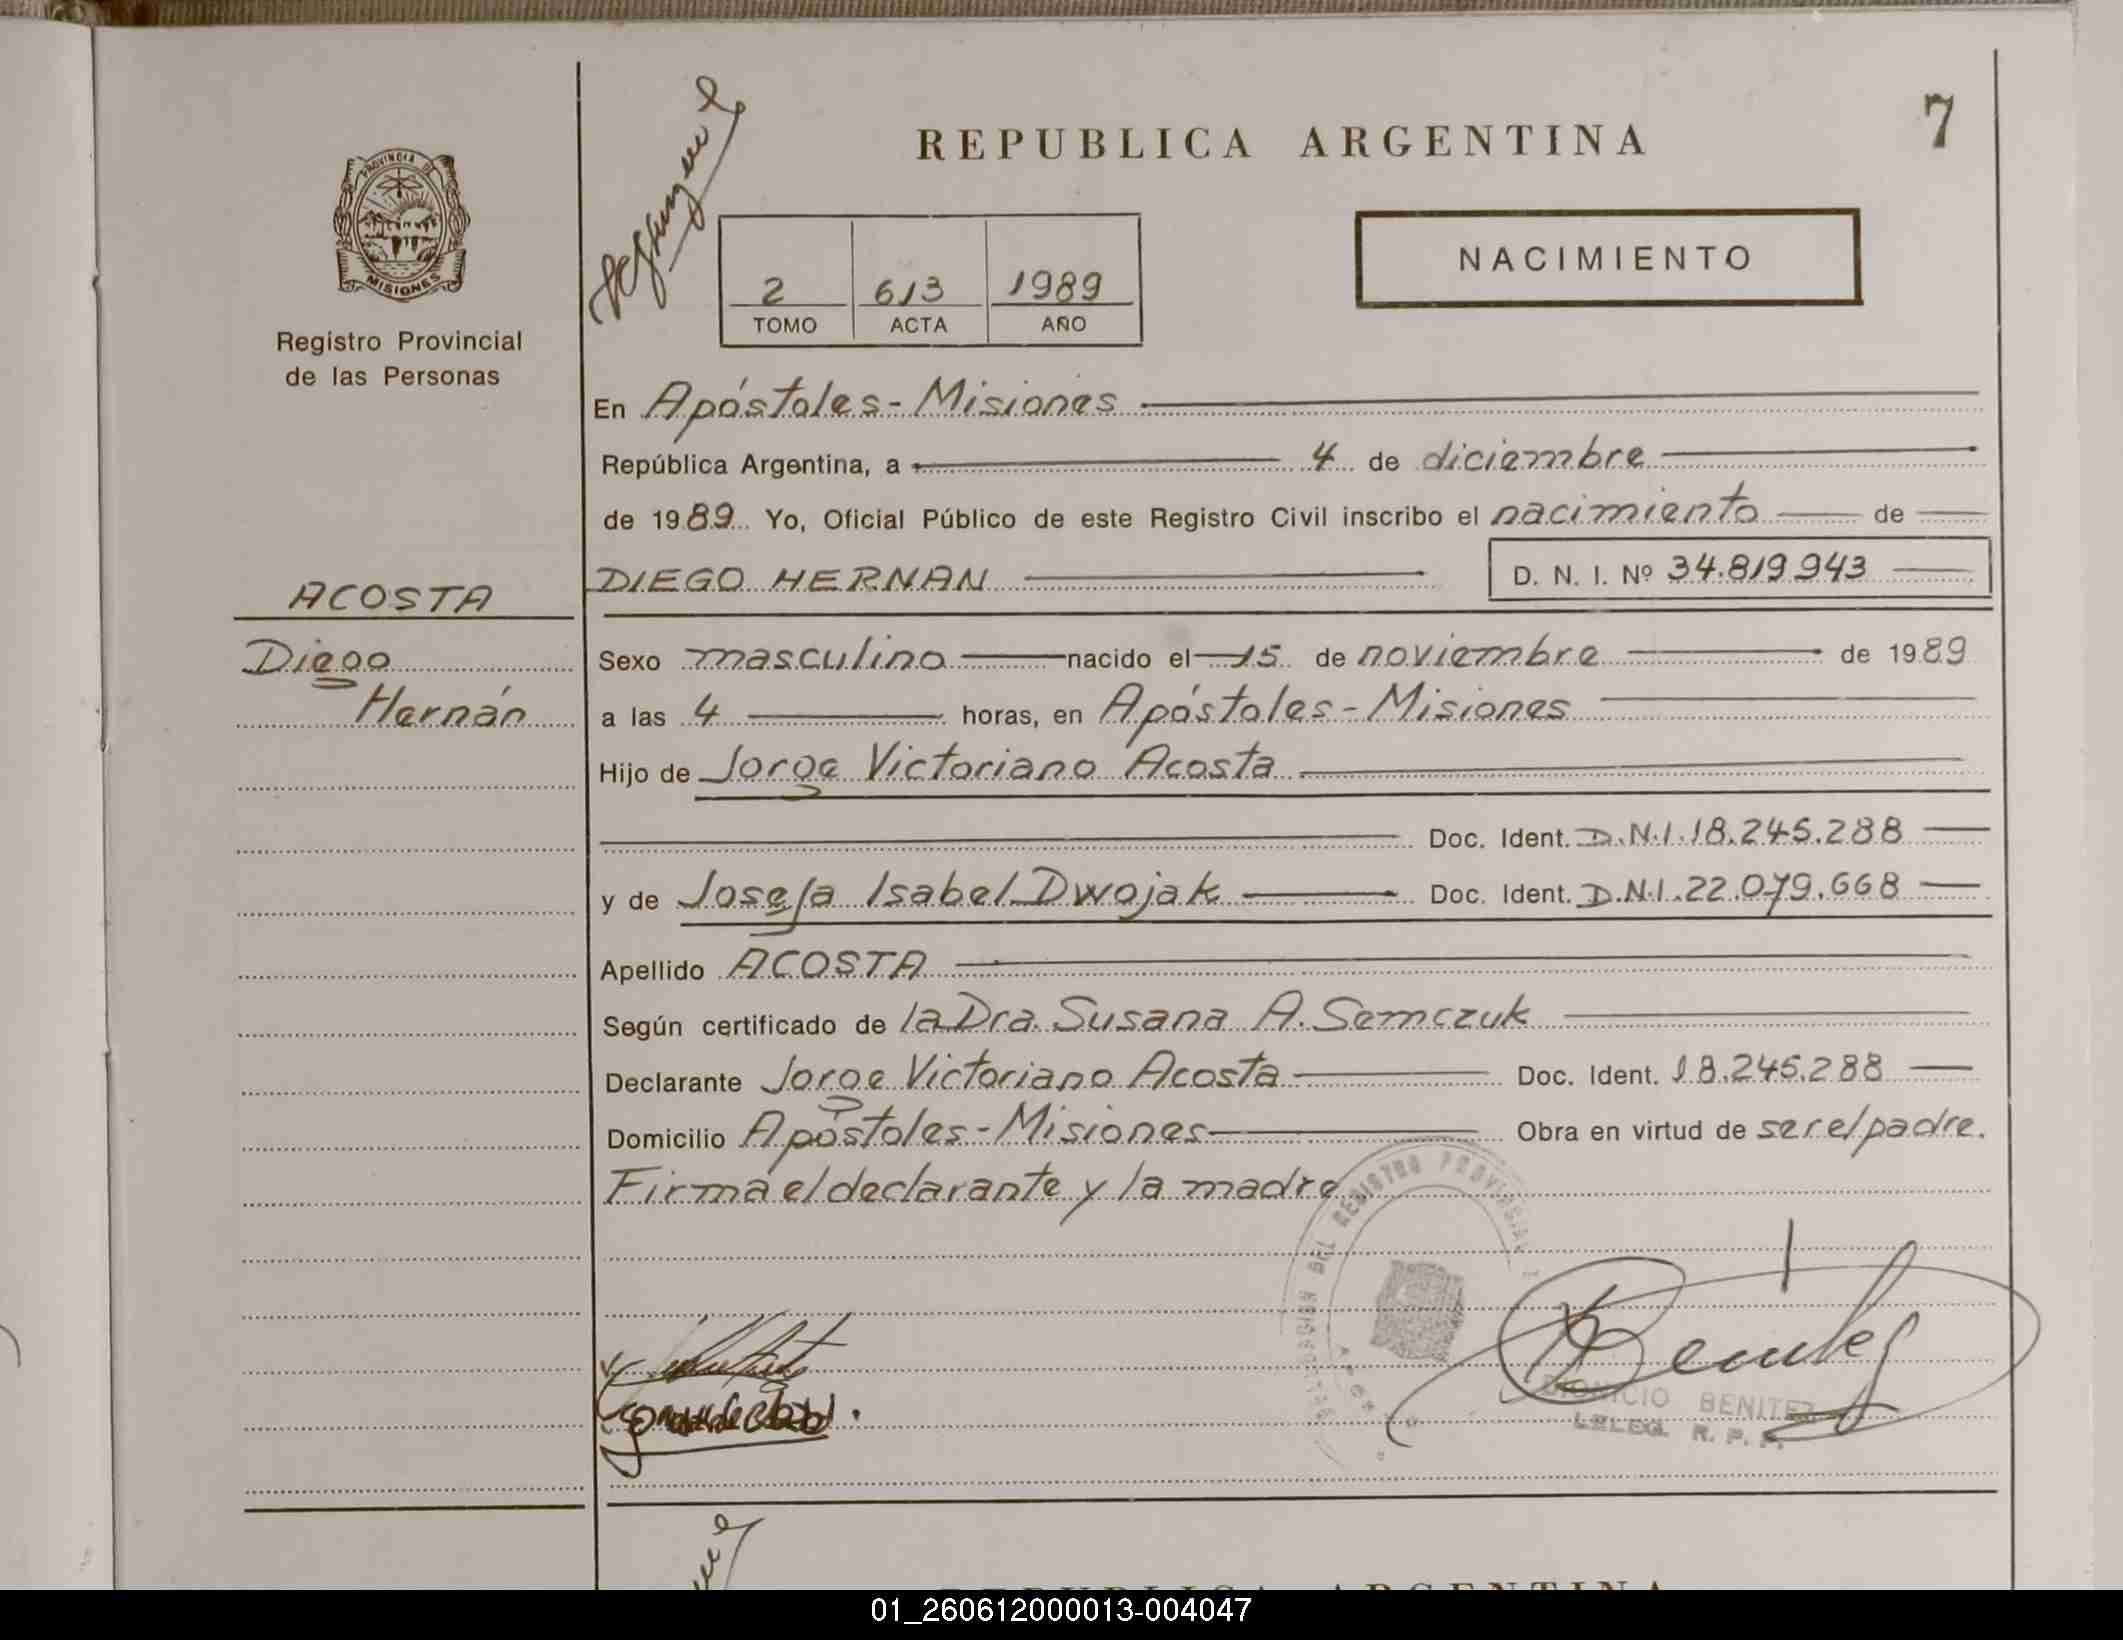 REPUBLICA ARGENTINA
7
PROVINCIA DE
MISIONES
Registro Provincial
de las Personas
NACIMIENTO
2 613 1989
TOMO ACTA AÑO
En Apóstoles - Misiones
República Argentina, a 4 de diciembre
de 1989 Yo, Oficial Público de este Registro Civil inscribo el nacimiento de
DIEGO HERNAN D. N. I. Nº 34.819.943
ACOSTA
Diego
Hernán
Sexo masculino nacido el 15 de noviembre de 1989
a las 4 horas, en Apóstoles - Misiones
Hijo de Jorge Victoriano Acosta
Doc. Ident. D.N.I. 18.245.288
y de Josefa Isabel Dwojak Doc. Ident. D.N.I. 22.079.668
Apellido ACOSTA
Según certificado de la Dra. Susana A. Semczuk
Declarante Jorge Victoriano Acosta Doc. Ident. 18.245.288
Domicilio Apóstoles - Misiones Obra en virtud de ser el padre.
Firma el declarante y la madre
DEL REGISTRO PROVINCIAL
Benitez
DIONICIO BENITEZ
R. P. P.
REPUBLICA ARGENTINA
01_260612000013-004047